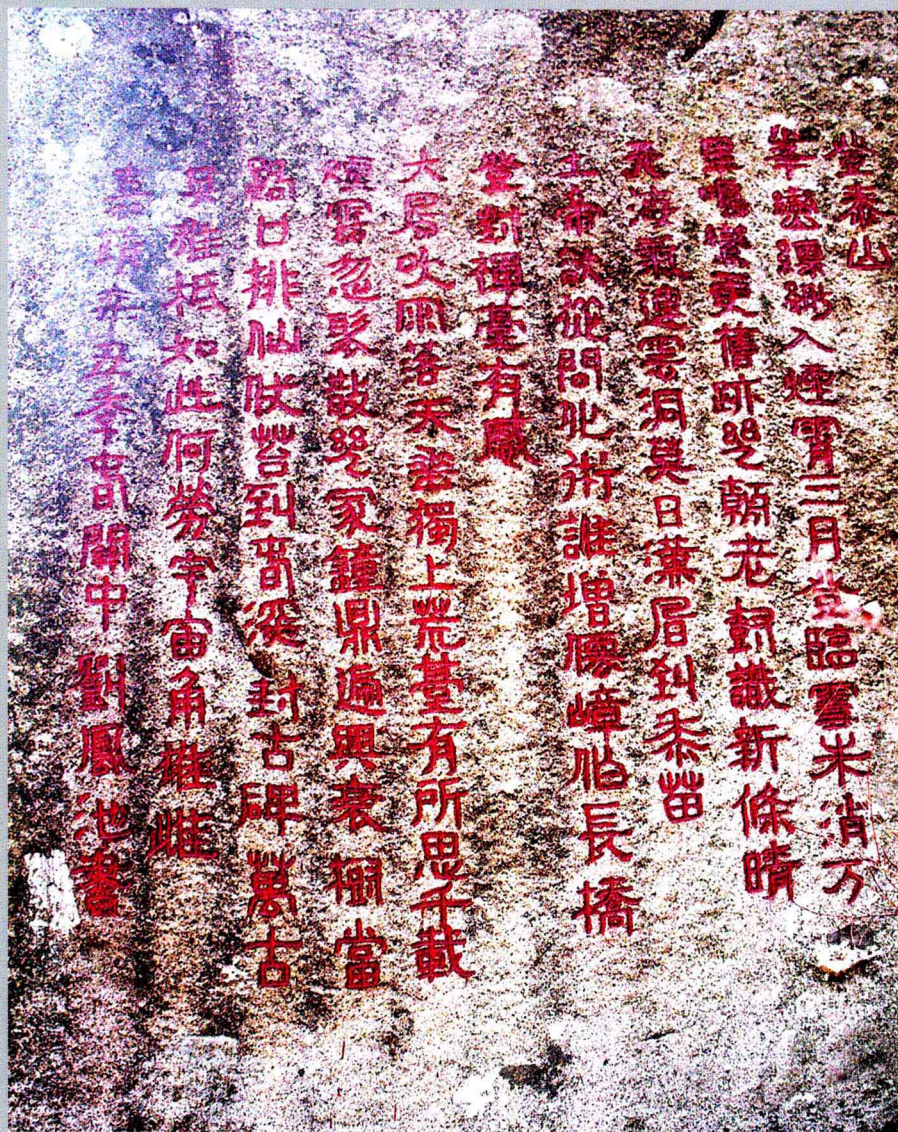 登泰山
半巒縹緲入煙霄三月登臨雪未消万
里鳴鸞更舊老樹識新條晴
飛海氣連雲洞莫日葉眉到黍苗
上帝欲從問化術誰增僊嶂作長橋
登封禪臺有感
大風吹雨落天垂獨上荒臺有所思千載
煙雲忽聚散幾家鐘鼎遍興衰樹當
路口排仙仗苔到春深封古碑萬古
是非秪如此何勞宇宙角雄雌
嘉靖辛丑季春閬中劉鳳池書